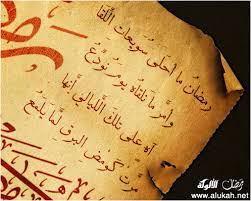 رمضان ما أحلى سويعات اللقا
وأمر ما تلقاه يوم نودع
آه على تلك الليالي إنها
مرت كومض البرق لما يلمع
www.alukah.net